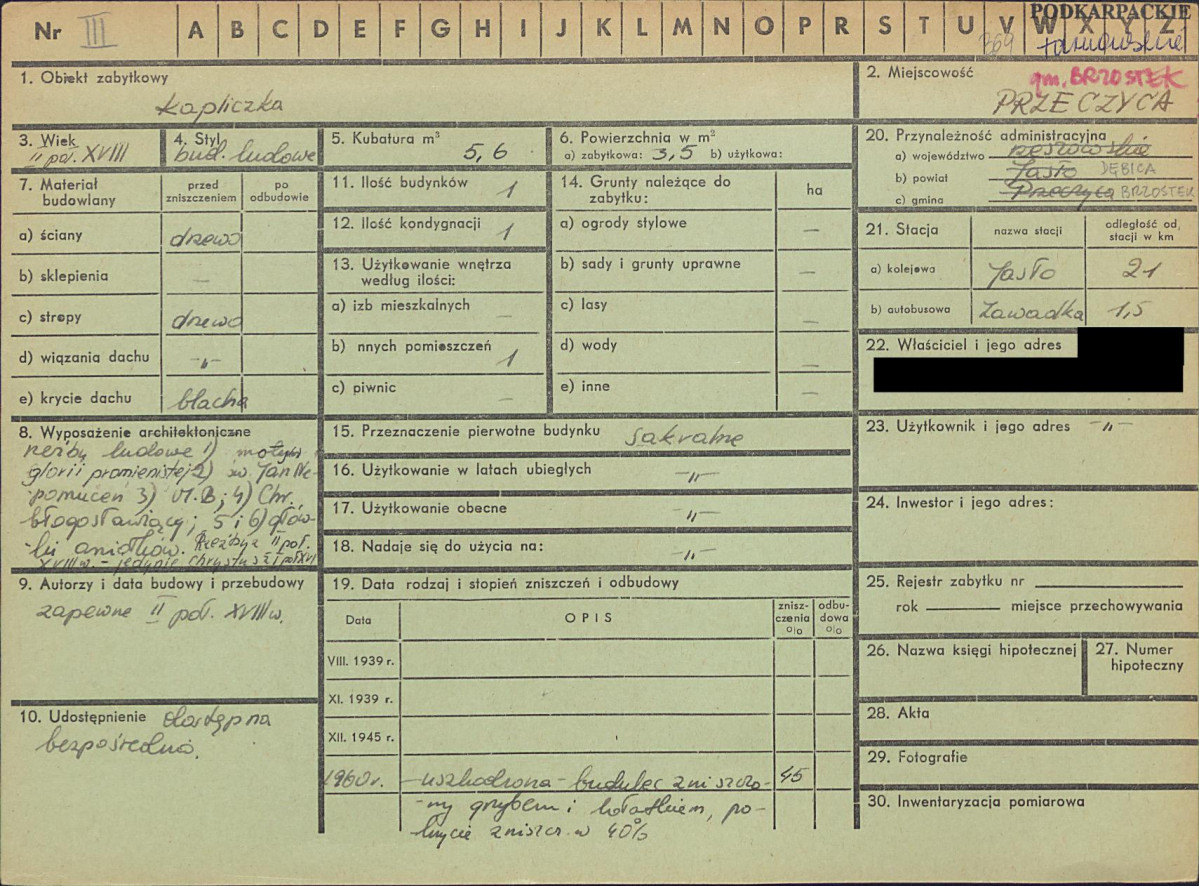 Nr III A B C D E F G H I J K L M N O P R S T U V W X Y Z
PODKARPACKIE
369 tarnowskie
1. Obiekt zabytkowy
kapliczka
2. Miejscowość
gm. BRZOSTEK
PRZECZYCA
3. Wiek
II poł. XVIII
4. Styl
bud. ludowe
5. Kubatura m³
5,6
6. Powierzchnia w m²
a) zabytkowa: 3,5 b) użytkowa:
20. Przynależność administracyjna
a) województwo rzeszowskie
b) powiat Jasło DĘBICA
c) gmina Przeczyca BRZOSTEK
7. Materiał budowlany
przed zniszczeniem
po odbudowie
a) ściany drzewo
b) sklepienia –
c) stropy drzewo
d) wiązania dachu -„-
e) krycie dachu blacha
11. Ilość budynków 1
12. Ilość kondygnacji 1
13. Użytkowanie wnętrza według ilości:
a) izb mieszkalnych –
b) nnych pomieszczeń 1
c) piwnic –
14. Grunty należące do zabytku:
ha
a) ogrody stylowe –
b) sady i grunty uprawne –
c) lasy –
d) wody –
e) inne –
21. Stacja
nazwa stacji
odległość od stacji w km
a) kolejowa Jasło 21
b) autobusowa Zawadka 1,5
22. Właściciel i jego adres
8. Wyposażenie architektoniczne
rzeźby ludowe 1) motyw
glorii promienistej 2) św. Jan Ne-
pomucen 3) M.B; 4) Chr.
błogosławiący; 5 i 6) głów-
ki aniołków. Rzeźby z II poł.
XVIII w. – jedynie Chrystus z I poł XVI
15. Przeznaczenie pierwotne budynku sakralne
16. Użytkowanie w latach ubiegłych -„-
17. Użytkowanie obecne -„-
18. Nadaje się do użycia na: -„-
23. Użytkownik i jego adres -„-
24. Inwestor i jego adres:
9. Autorzy i data budowy i przebudowy
zapewne II poł. XVIII w.
10. Udostępnienie dostępna
bezpośrednio.
19. Data rodzaj i stopień zniszczeń i odbudowy
Data
OPIS
znisz-
czenia
%
odbu-
dowa
%
VIII. 1939 r.
XI. 1939 r.
XII. 1945 r.
1960 r. – uszkodzona – budulec zniszczo- 45
-ny grzybem i kołatkiem, po-
krycie zniszcz. w 40%
25. Rejestr zabytku nr
rok miejsce przechowywania
26. Nazwa księgi hipotecznej
27. Numer hipoteczny
28. Akta
29. Fotografie
30. Inwentaryzacja pomiarowa